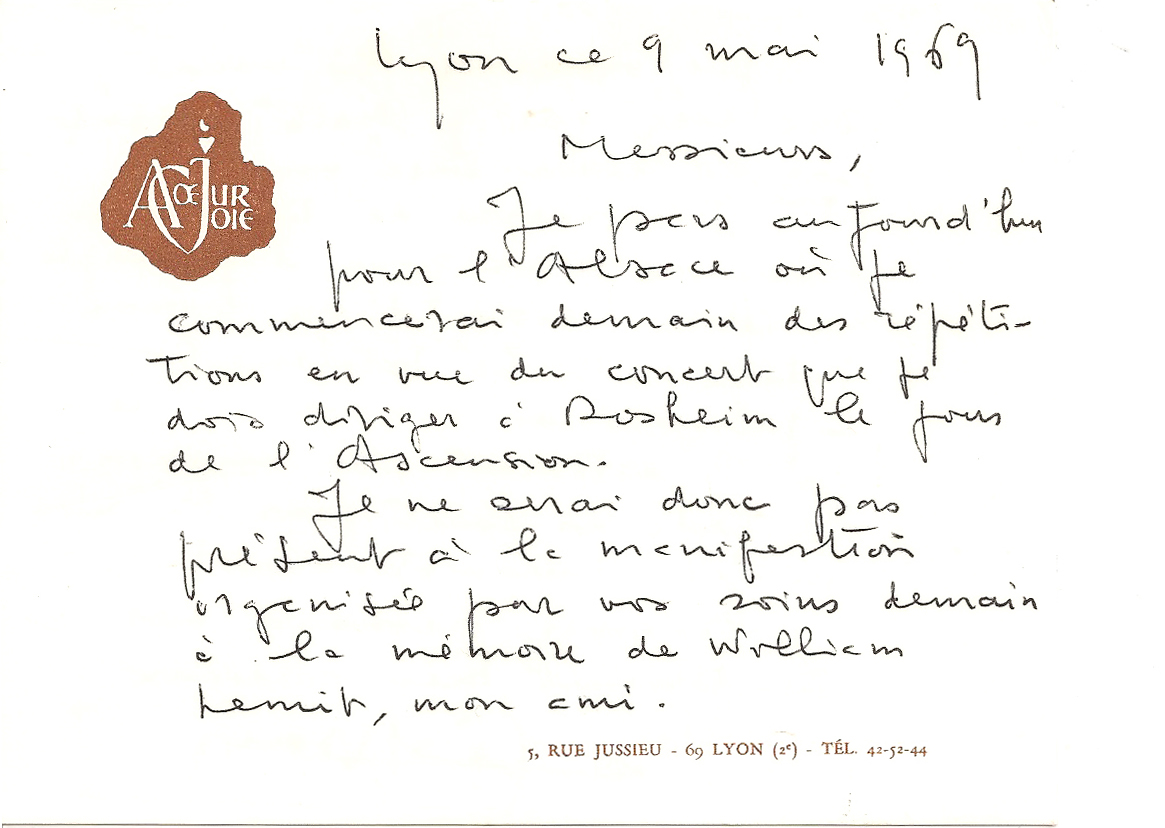 Lyon ce 9 mai 1969
A CŒUR JOIE
Messieurs,
Je pars aujourd'hui
pour l'Alsace où je
commencerai demain des répéti-
tions en vue du concert que je
dois diriger à Rosheim le jour
de l'Ascension.
Je ne serai donc pas
présent à la manifestion
organisée par vos soins demain
à la mémoire de William
Lemit, mon ami.
5, RUE JUSSIEU - 69 LYON (2e) - TÉL. 42-52-44